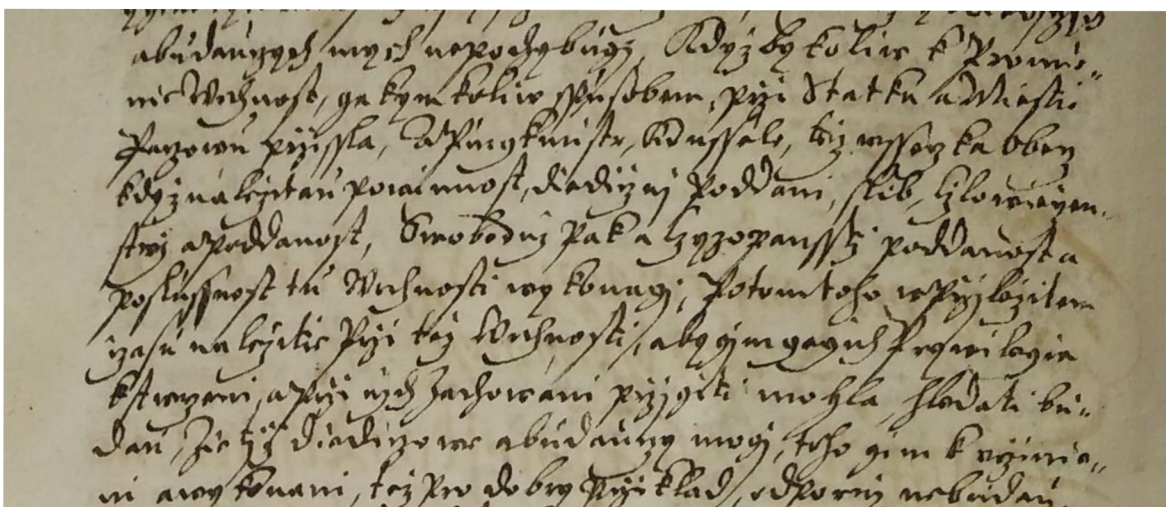 abudauczych mych nepochybugj, Kdyzby koliw k Promie„
nie Wrchnost, gakym koliw spusobem, przi Statku a Miestie
przissla, A Purgkmistr, Konssele, tez wsseczka obecz
kdyz nalezitau powinnost, diediczny Poddani, slib, czlowieczen„
stwj a poddanost, Swobodnj pak a czyzopanssti poddanost a
poslussnost tu Wrchnosti wykonagj, Potomtoho w Przilezitem
czasu nalezitie Przi tez Wrchnosti, aby gim gegich Prywilegia
kstwrzeni, a przi nich zachowani przigiti mohla, hledati bu„
dau, Ze tiz Diediczowe a budauczy mogj, toho gim k
ni a wykonani, tez pro dobry Prziklad, odporni nebudau